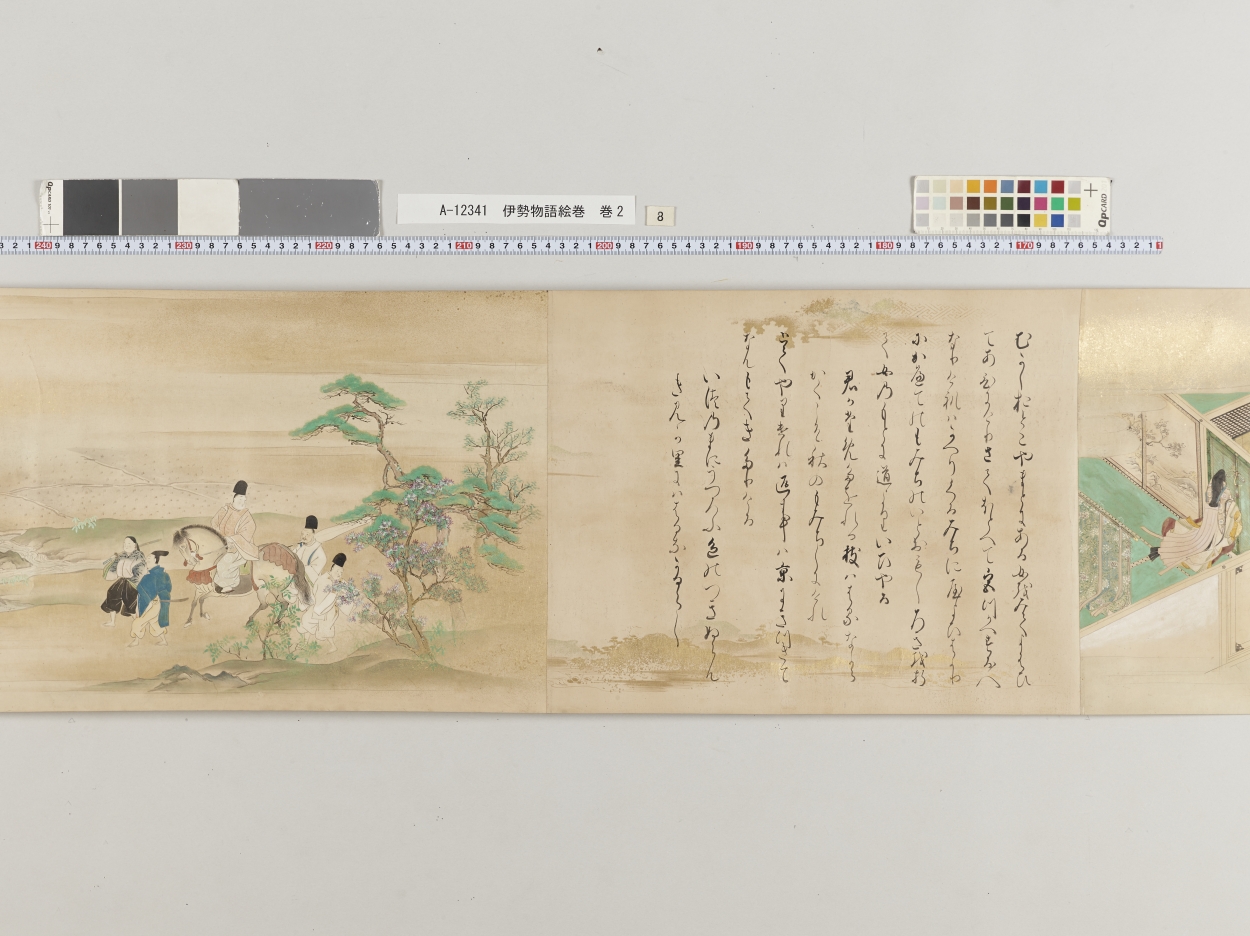 A-12341 伊勢物語絵巻 巻2
8
むかしおとこやまとにある女をみてよはひ
てあひにけりさてほとへて宮つかへする人
なりけれはかへりくるみちにやよひはかり
にかへてのもみちのいとおもしろきを折
て女のもとに道よりいひやる
君かためたをれる枝ははるなから
かくこそ秋のもみちしにけれ
とてやりたれは返事は京にきつきて
なんもてきたりける
いつのまにうつろふ色のつきぬらん
きみか里にははるなかるらし
QPCARD